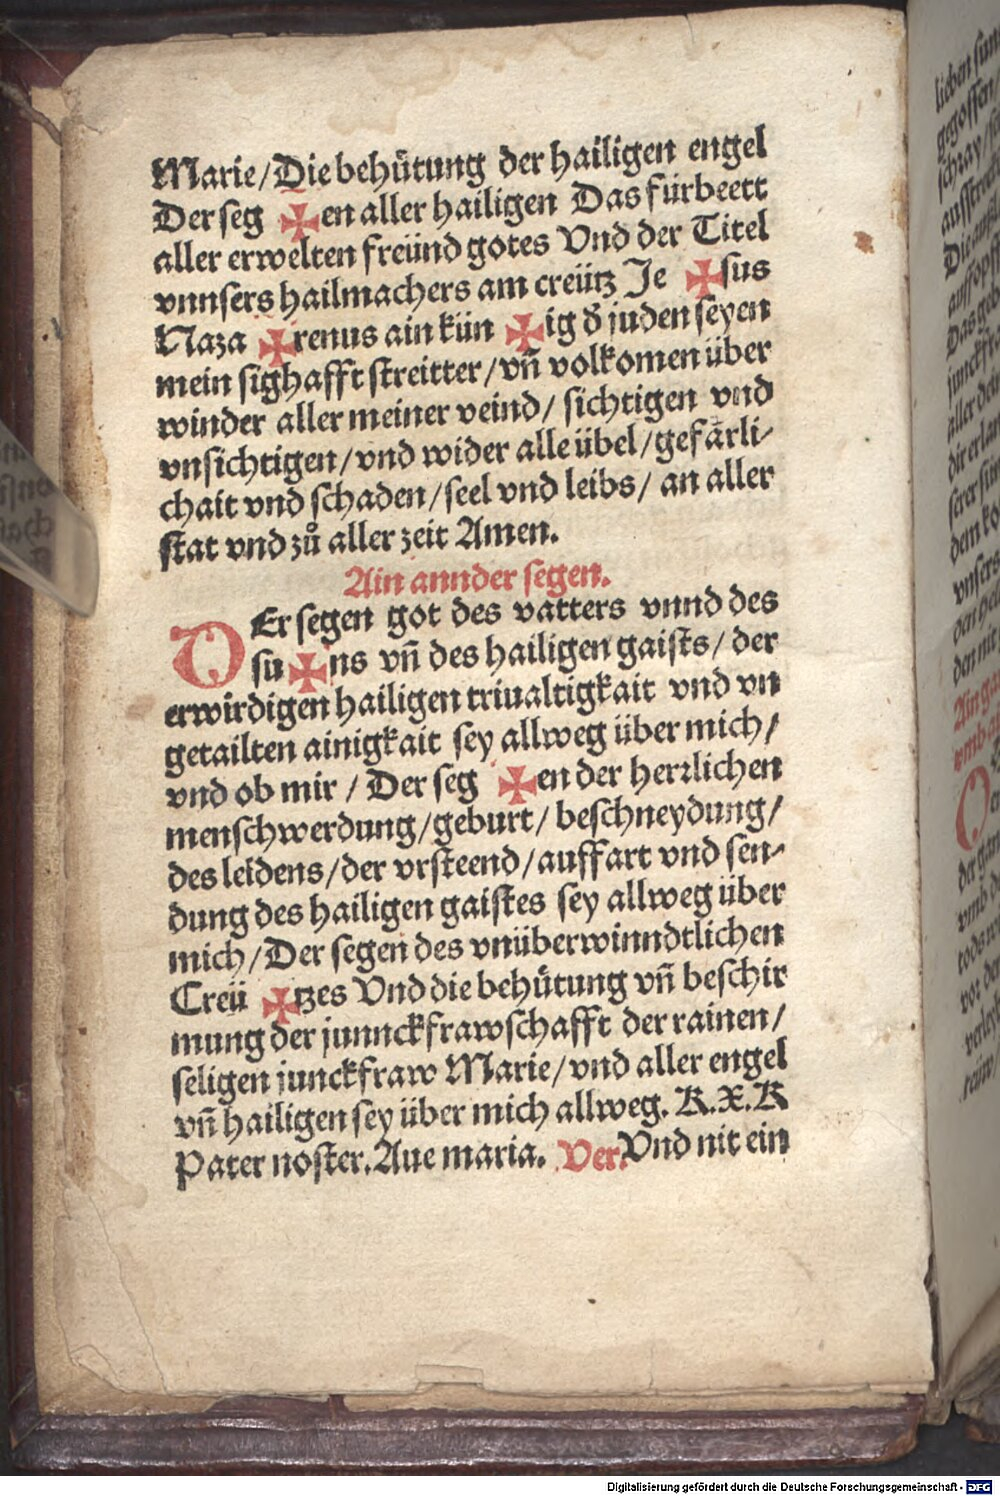 Marie/Die behůtung der hailigen engel
Der seg ✠en aller hailigen Das fürbeett
aller erwelten freünd gotes Vnd der Titel
vnnsers hailmachers am creütz Je ✠sus
Naza ✠renus ain kün ✠ig d̕ juden seyen
mein sighafft streitter/vn̄ volkomen über
winder aller meiner veind/ sichtigen vnd
vnsichtigen/vnd wider alle übel/gefärli-
chait vnd schaden/seel vnd leibs/ an aller
stat vnd zů aller zeit Amen.
Ain annder segen.
DEr segen got des vatters vnnd des
su✠ns vn̄ des hailigen gaists/ der
erwirdigen hailigen triualtigkait vnd vn
getailten ainigkait sey allweg über mich/
vnd ob mir / Der seg ✠en der herrlichen
menschwerdung/geburt/ beschneydung/
des leidens/der vrsteend/auffart vnd sen-
dung des hailigen gaistes sey allweg über
mich/Der segen des vnüberwinndtlichen
Creü ✠tzes Vnd die behůtung vn̄ beschir
mung der junnckfrawschafft der rainen/
seligen junckfraw Marie/vnd aller engel
vn̄ hailigen sey über mich allweg. K.X.K
Pater noster. Aue maria. Ver. Vnd nit ein
lieben sün
gegossen/
Digitalisierung gefördert durch die Deutsche Forschungsgemeinschaft - DFG